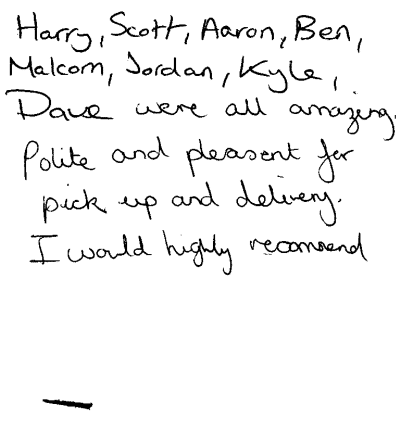 Harry, Scott, Aaron, Ben,
Malcom, Jordan, Kyle,
Dave were all amazing.
Polite and pleasent for
pick up and delivery.
I would highly recomend